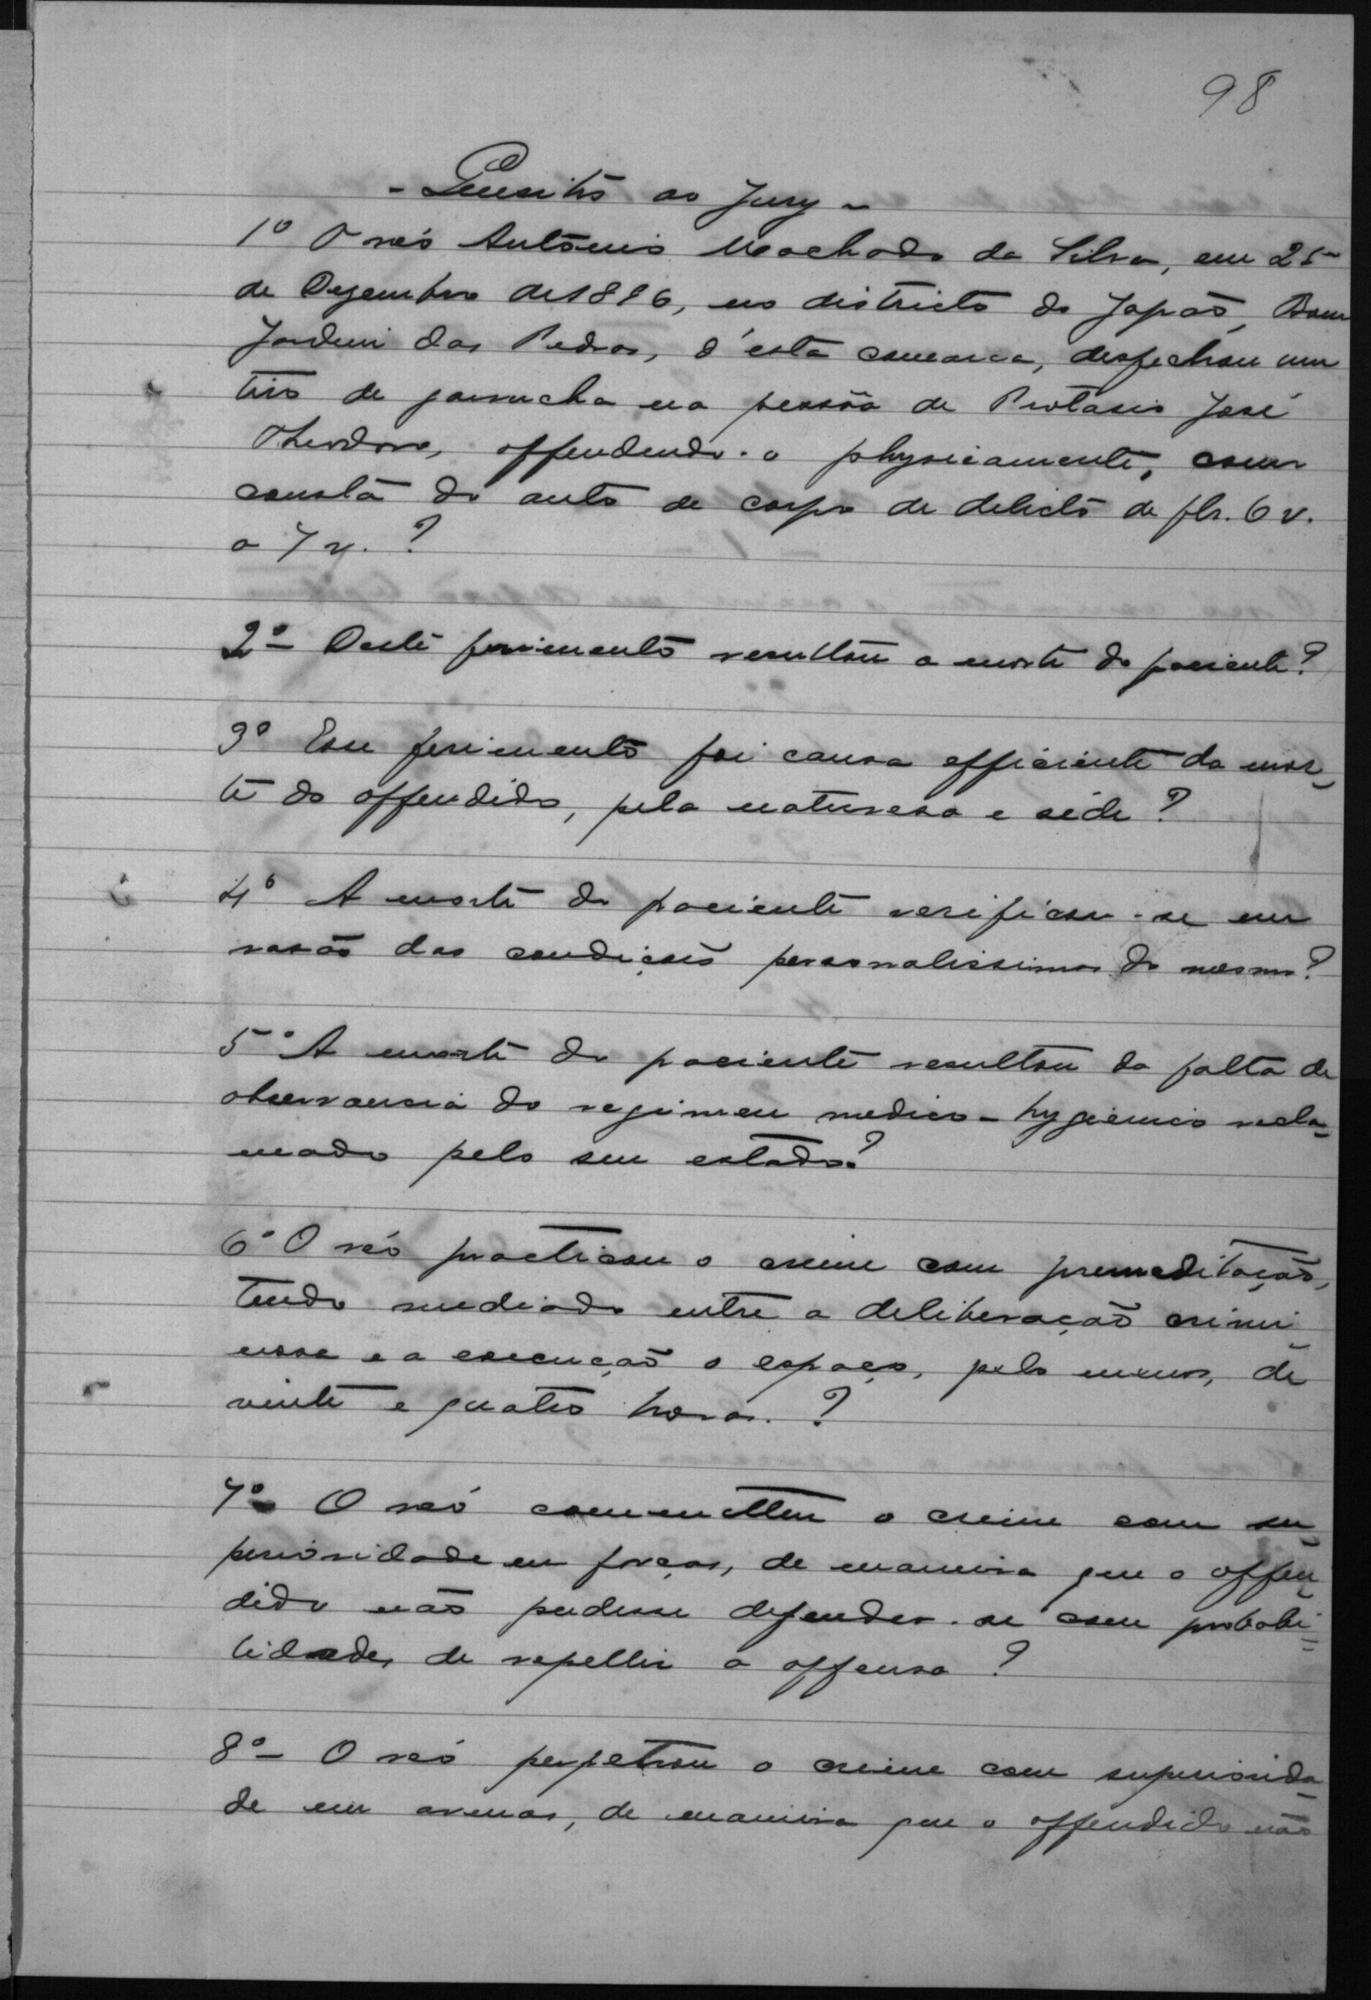 98
- Quesitos ao Jury -
1º O réo Antônio Machado da Silva, em 25
de Dezembro de 1896, no districto do Japão, Bom
Jardim das Pedras, d'esta comarca, desfechou um
tiro de garrucha na pessôa de Protasio José
Theodoro, offendendo-o physicamente, como
consta do auto de corpo de delicto de fls. 6 v.
a 7 v. ?
2º - Deste ferimento resultou a morte do paciente?
3º Esse ferimento foi causa efficiente da mor-
te do offendido, pela naturesa e séde ?
4º A morte do paciente verificou-se em
rasão das condições personalissimas do mesmo?
5º A morte do paciente resultou da falta de
observancia do regimen medico-hygienico recla-
mado pelo seu estado?
6º O réo practicou o crime com premeditação,
tendo mediado entre a deliberação crimi-
nosa e a execução o espaço, pelo menos, de
vinte e quatro horas. ?
7º O réo commetteu o crime com su-
perioridade em forças, de maneira que o offen-
dido não pudesse defender-se com probabi-
lidade, de repellir a offensa ?
8º - O réo perpetrou o crime com superiorida-
de em armas, de maneira que o offendido não